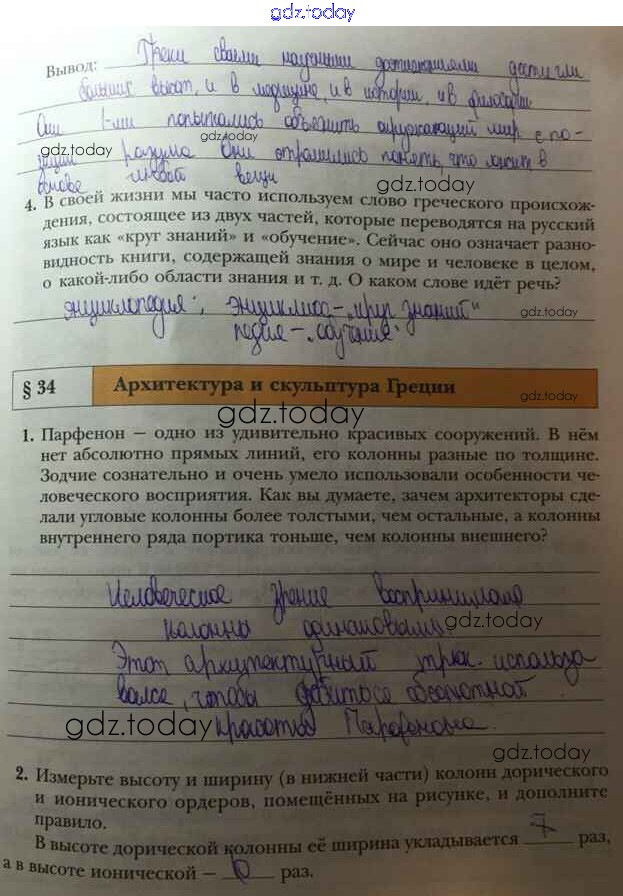 gdz.today
Вывод: Греки своими научными достижениями достигли
больших высот, и в медицине, и в истории, и в философии
Они 1-ми попытались объяснить окружающий мир с по-
gdz.today
зиции разума Они стремились понять, что лежит в
основе любой вещи
gdz.today
4. В своей жизни мы часто используем слово греческого происхож-
дения, состоящее из двух частей, которые переводятся на русский
язык как «круг знаний» и «обучение». Сейчас оно означает разно-
видность книги, содержащей знания о мире и человеке в целом,
о какой-либо области знания и т. д. О каком слове идёт речь?
энциклопедия", энциклиос-"круг знаний"
gdz.today
педия-"обучение"
§ 34 Архитектура и скульптура Греции
gdz.today
gdz.today
1. Парфенон — одно из удивительно красивых сооружений. В нём
нет абсолютно прямых линий, его колонны разные по толщине.
Зодчие сознательно и очень умело использовали особенности че-
ловеческого восприятия. Как вы думаете, зачем архитекторы сде-
лали угловые колонны более толстыми, чем остальные, а колонны
внутреннего ряда портика тоньше, чем колонны внешнего?
Человеческое зрение воспринимало
колонны одинаковыми.
gdz.today
Этот архитектурный трюк использо
вался, чтобы добиться абсолютной
gdz.today
красоты Парфенона.
gdz.today
2. Измерьте высоту и ширину (в нижней части) колонн дорического
и ионического ордеров, помещённых на рисунке, и дополните
правило.
В высоте дорической колонны её ширина укладывается 7 раз,
а в высоте ионической — раз.